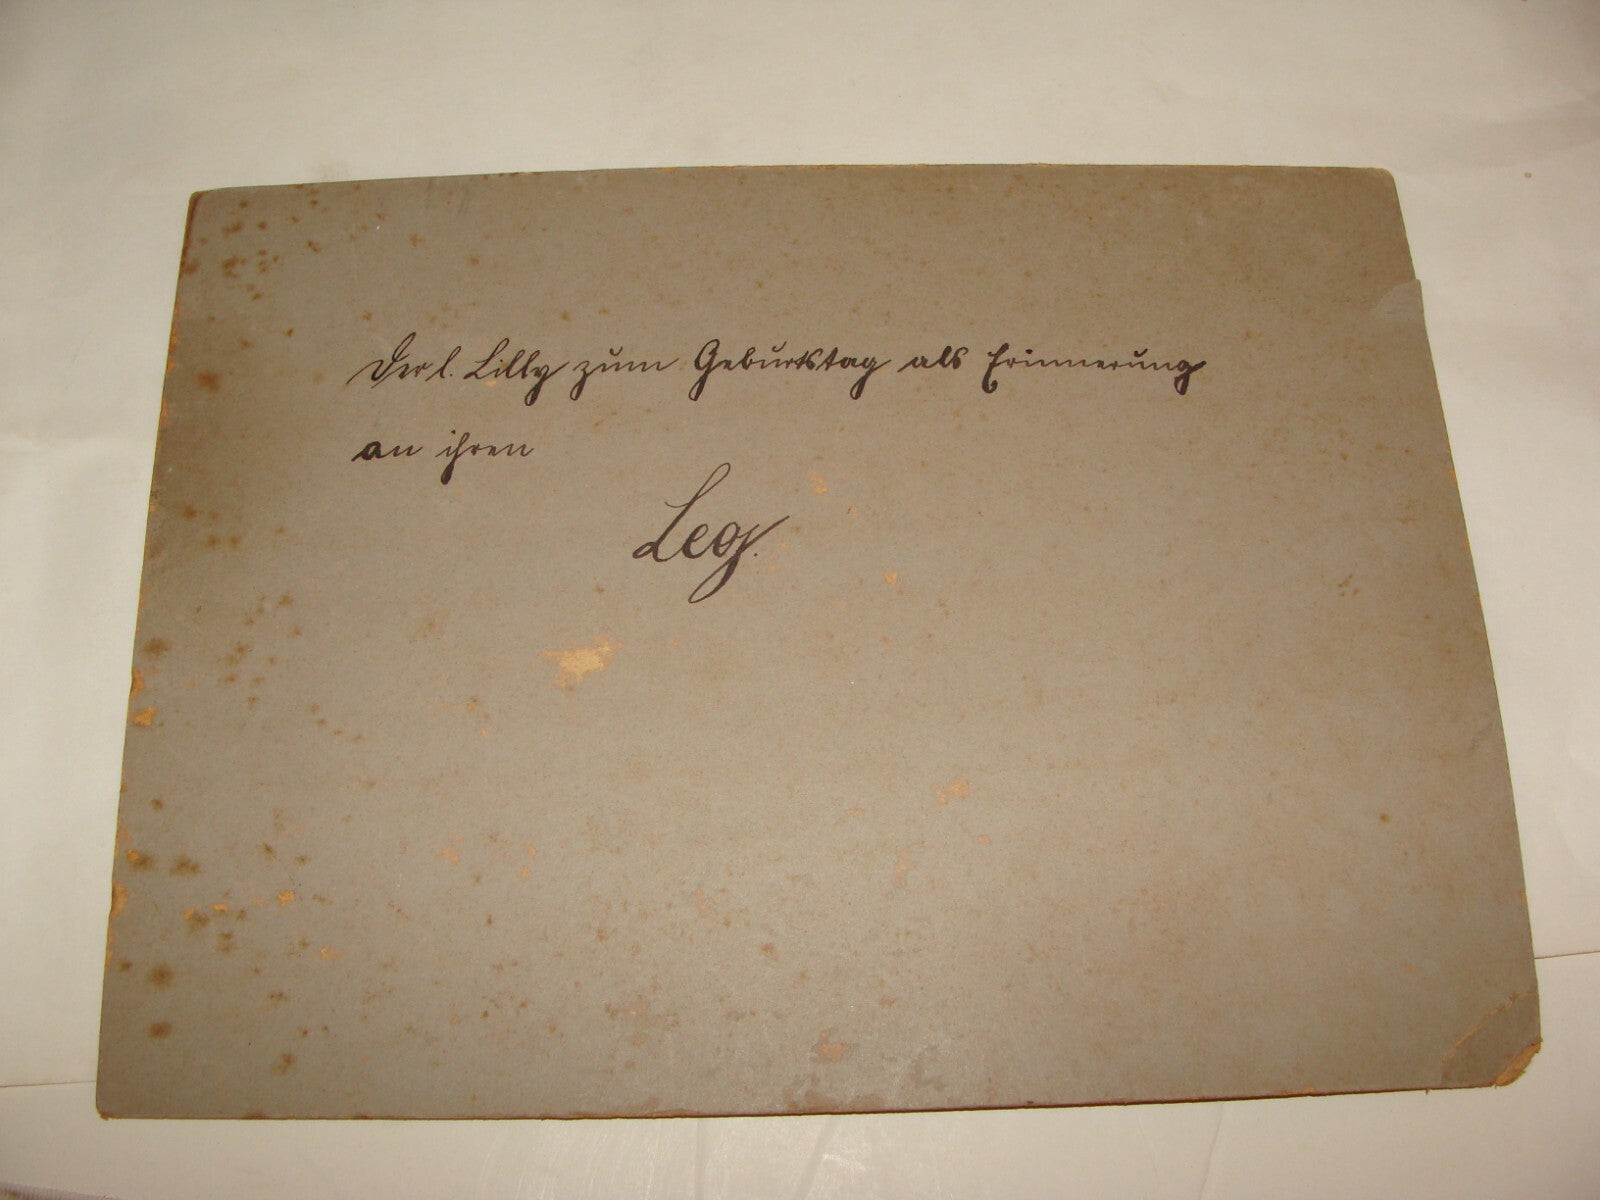 Der l. Lilly zum Geburtstag als Erinnerung
an ihren
Leg.